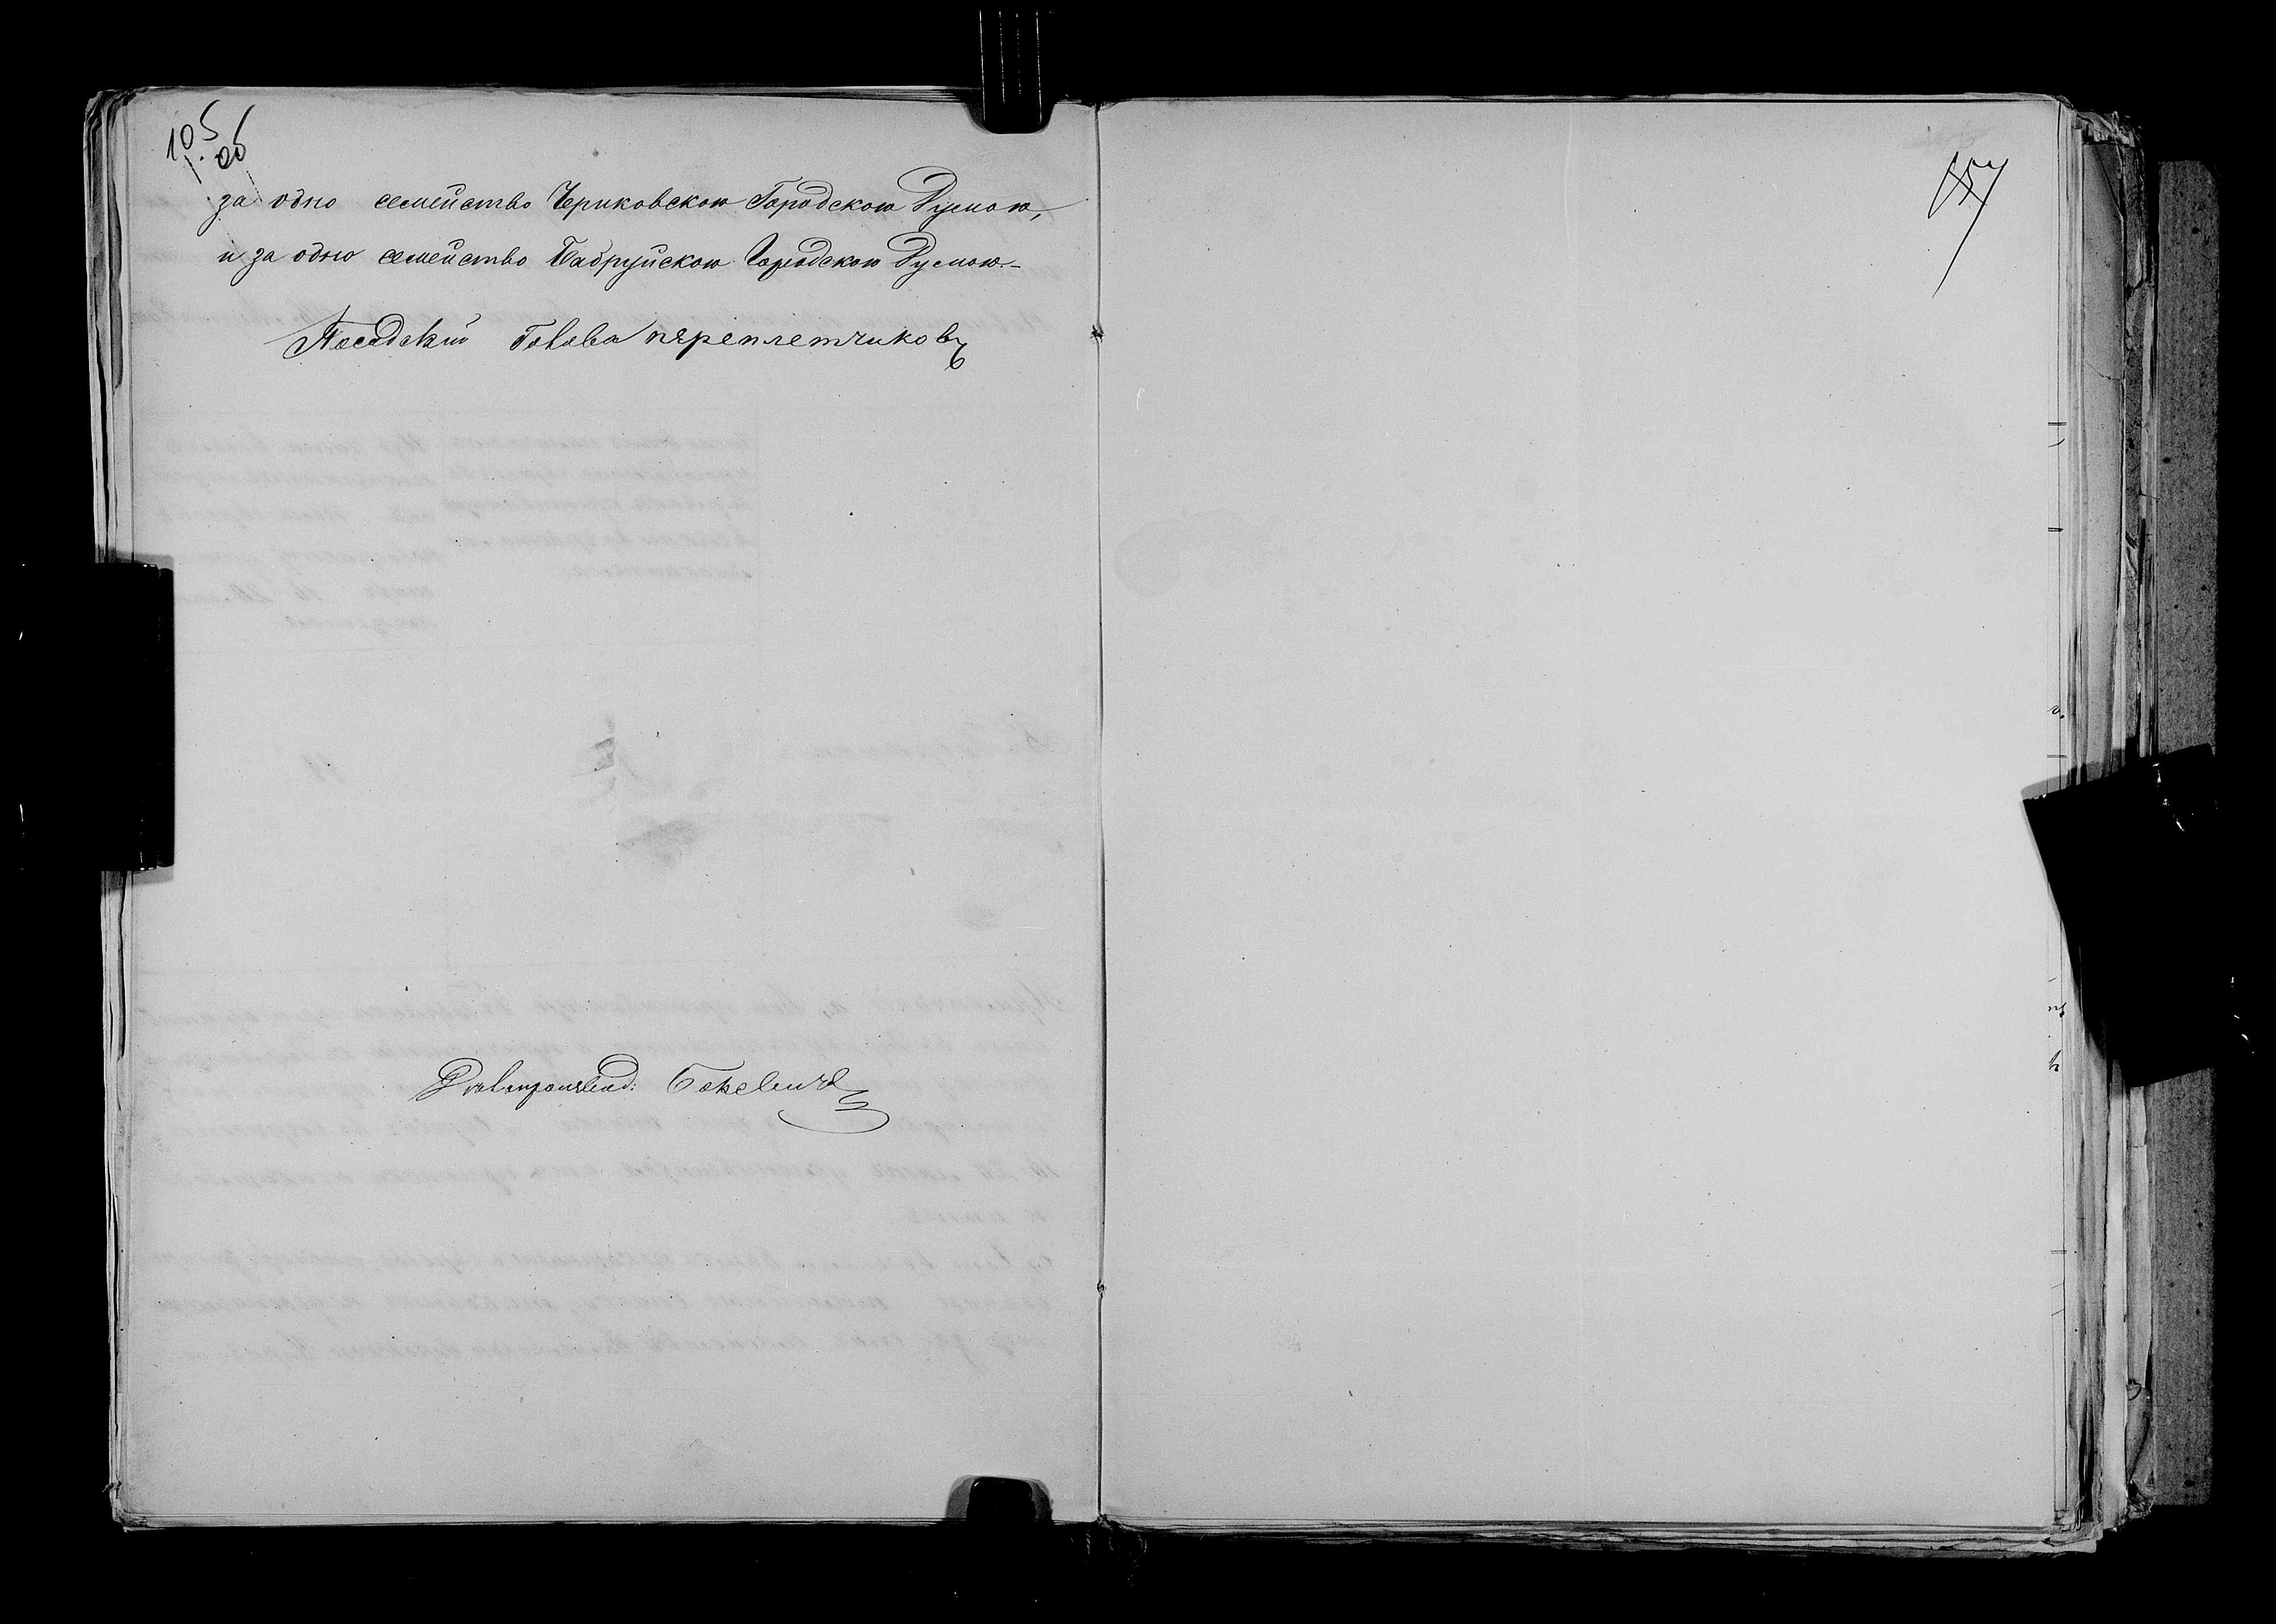 105
об
за одно семейство Чериковскою Городскою Думою,
и за одно семейство Бабруйскою Городскою Думою.-
Посадский Голова переплетчиковъ